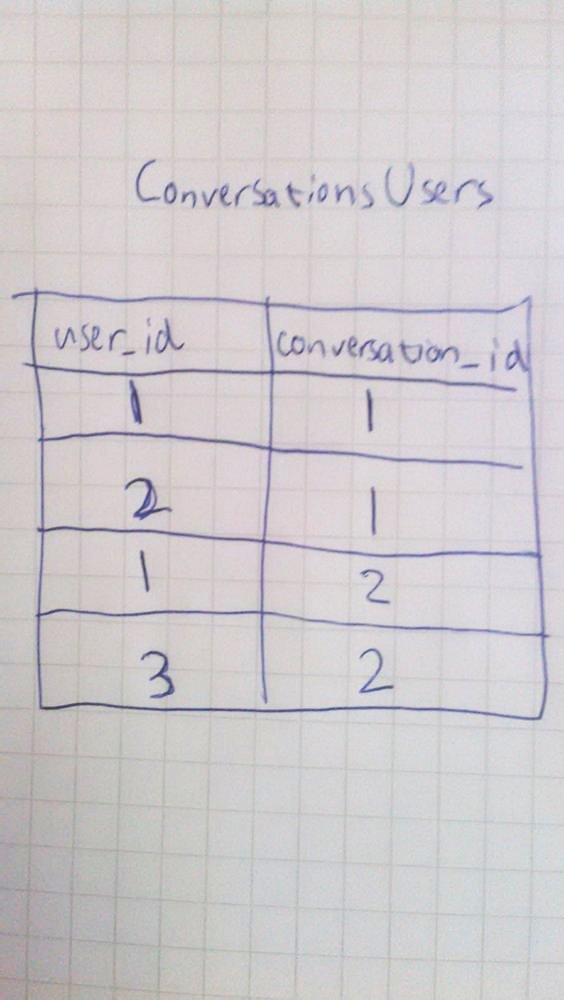 Conversations Users
user_id conversation_id
1 1
2 1
1 2
3 2